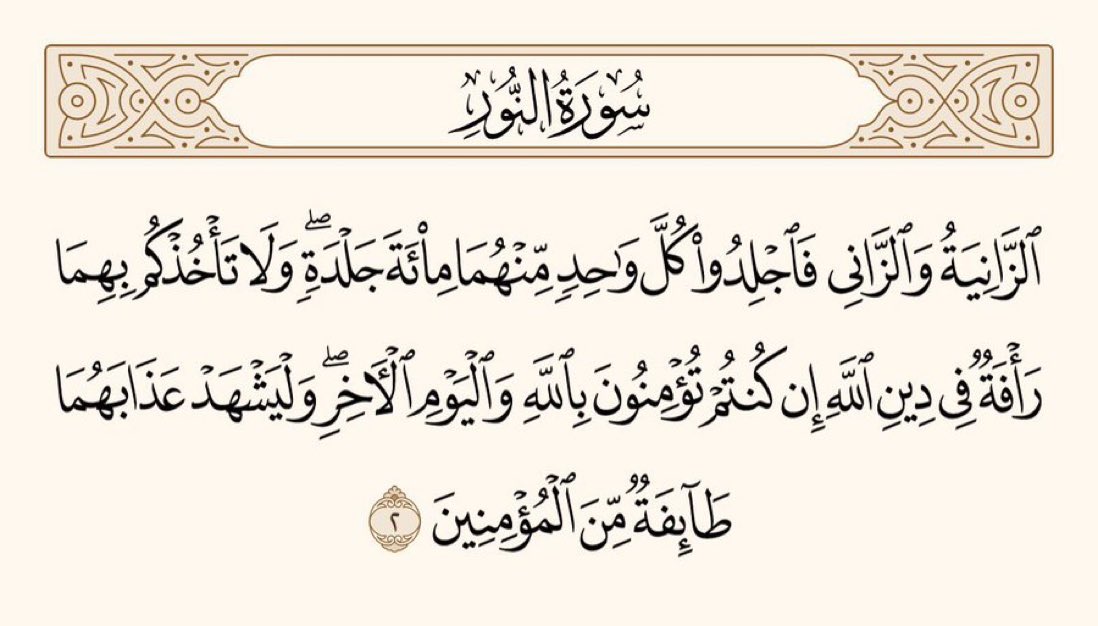 سُورَةُ النُّورِ
ٱلزَّانِيَةُ وَٱلزَّانِي فَٱجۡلِدُواْ كُلَّ وَٰحِدٖ مِّنۡهُمَا مِاْئَةَ جَلۡدَةٖۖ وَلَا تَأۡخُذۡكُم بِهِمَا
رَأۡفَةٞ فِي دِينِ ٱللَّهِ إِن كُنتُمۡ تُؤۡمِنُونَ بِٱللَّهِ وَٱلۡيَوۡمِ ٱلۡأٓخِرِۖ وَلۡيَشۡهَدۡ عَذَابَهُمَا
طَآئِفَةٞ مِّنَ ٱلۡمُؤۡمِنِينَ ٢